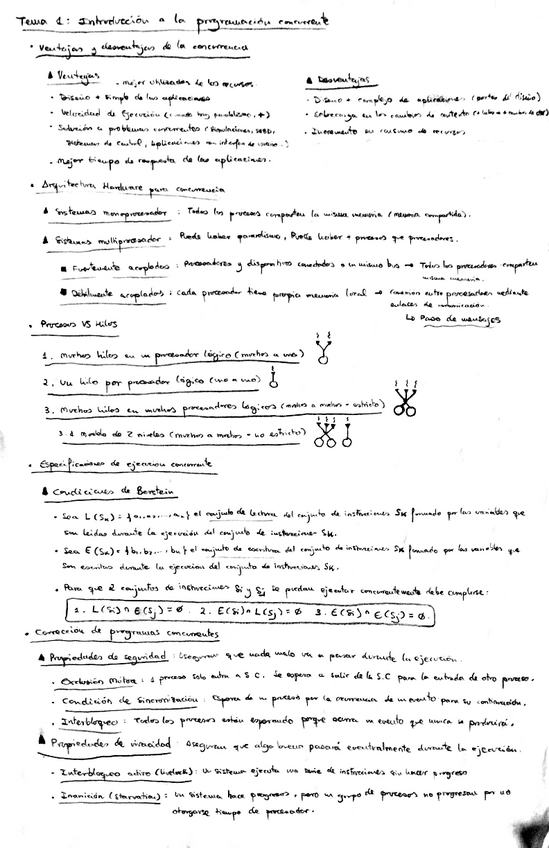 Tema 1: Introducción a la programación concurrente
· Ventajas y desventajas de la concurrencia
▲ Ventajas
· mejor utilización de los recursos.
▲ Desventajas
· Diseño + simple de las aplicaciones
· Diseño + complejo de aplicaciones (partes del diseño)
· Velocidad de Ejecución
· Sobrecarga en los cambios de contexto
· Solución a problemas concurrentes (Simulaciones, SGBD,
Sistemas de control, Aplicaciones con interfaz de usuario..)
· Incremento en consumo de recursos.
· Mejor tiempo de respuesta de las aplicaciones.
· Arquitectura Hardware para concurrencia
▲ Sistemas monoprocesador : Todos los procesos comparten la misma memoria (memoria compartida).
▲ Sistemas multiprocesador : Puede haber paralelismo, Puede haber + procesos que procesadores.
■ Fuertemente acoplados : Procesadores y dispositivos conectados a un mismo bus → Todos los procesadores comparten
misma memoria.
■ Debilmente acoplados : cada procesador tiene propia memoria local → conexión entre procesadores mediante
enlaces de comunicación
↳ Paso de mensajes
· Procesos VS Hilos
1. Muchos hilos en un procesador lógico (muchos a uno)
2. Un hilo por procesador lógico (uno a uno)
3. Muchos hilos en muchos procesadores logicos (muchos a muchos - estricto)
3.1 Modelo de 2 niveles (muchos a muchos - no estricto)
· Especificaciones de ejecucion concurrente
▲ Condiciones de Berstein
· Sea L(Sk) = {a1, a2, ..., an} el conjunto de lectura del conjunto de instrucciones Sk formado por las variables que
son leidas durante la ejecución del conjunto de instrucciones Sk.
· Sea E(Sk) = {b1, b2, ... bn} el conjunto de escritura del conjunto de instrucciones Sk formado por las variables que
son escritas durante la ejecucion del conjunto de instrucciones Sk.
· Para que 2 conjuntos de instrucciones Si y Sj se puedan ejecutar concurrentemente debe cumplirse:
1. L(Si) ∩ E(Sj) = Ø. 2. E(Si) ∩ L(Sj) = Ø 3. E(Si) ∩ E(Sj) = Ø.
· Correccion de programas concurrentes
▲ Propiedades de seguridad : Aseguran que nada malo va a pasar durante la ejecución.
· Exclusión Mutua : 1 proceso solo entra a S.C. Se espera a salir de la S.C para la entrada de otro proceso.
· Condición de Sincronización : Espera de un proceso por la ocurrencia de un evento para su continuación.
· Interbloqueo : Todos los procesos están esperando porque ocurra un evento que nunca se producirá.
▲ Propiedades de vivacidad : Aseguran que algo bueno pasará eventualmente durante la ejecución.
· Interbloqueo activo (livelock): Un sistema ejecuta una serie de instrucciones sin hacer progreso
· Inanición (starvation) : Un sistema hace progresos, pero un grupo de procesos no progresan por no
otorgarse tiempo de procesador.